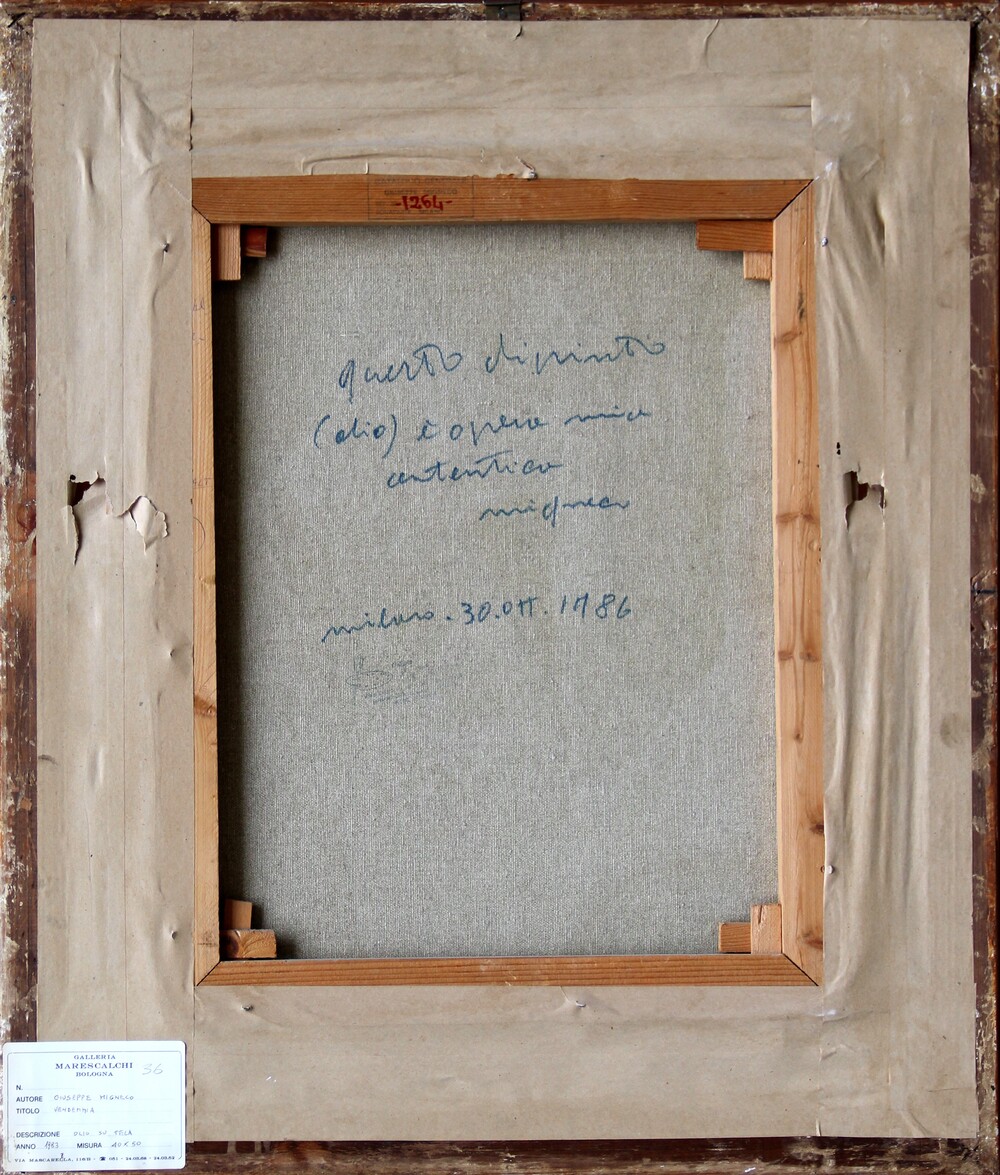 -1264-
questo dipinto
(olio) è opera mia
autentica
migneco
milano. 30.Ott. 1986
GALLERIA
MARESCALCHI 36
BOLOGNA
N.
AUTORE GIUSEPPE MIGNECO
TITOLO VENDEMMIA
DESCRIZIONE OLIO SU TELA
ANNO MISURA 40x50
VIA MASCARELLA, 116/B - ☎ 051 -